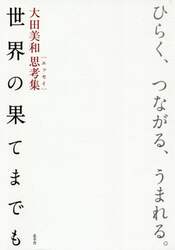 ひらく、つながる、うまれる。
大田美和 思考集
［エッセイ］
世界の果てまでも